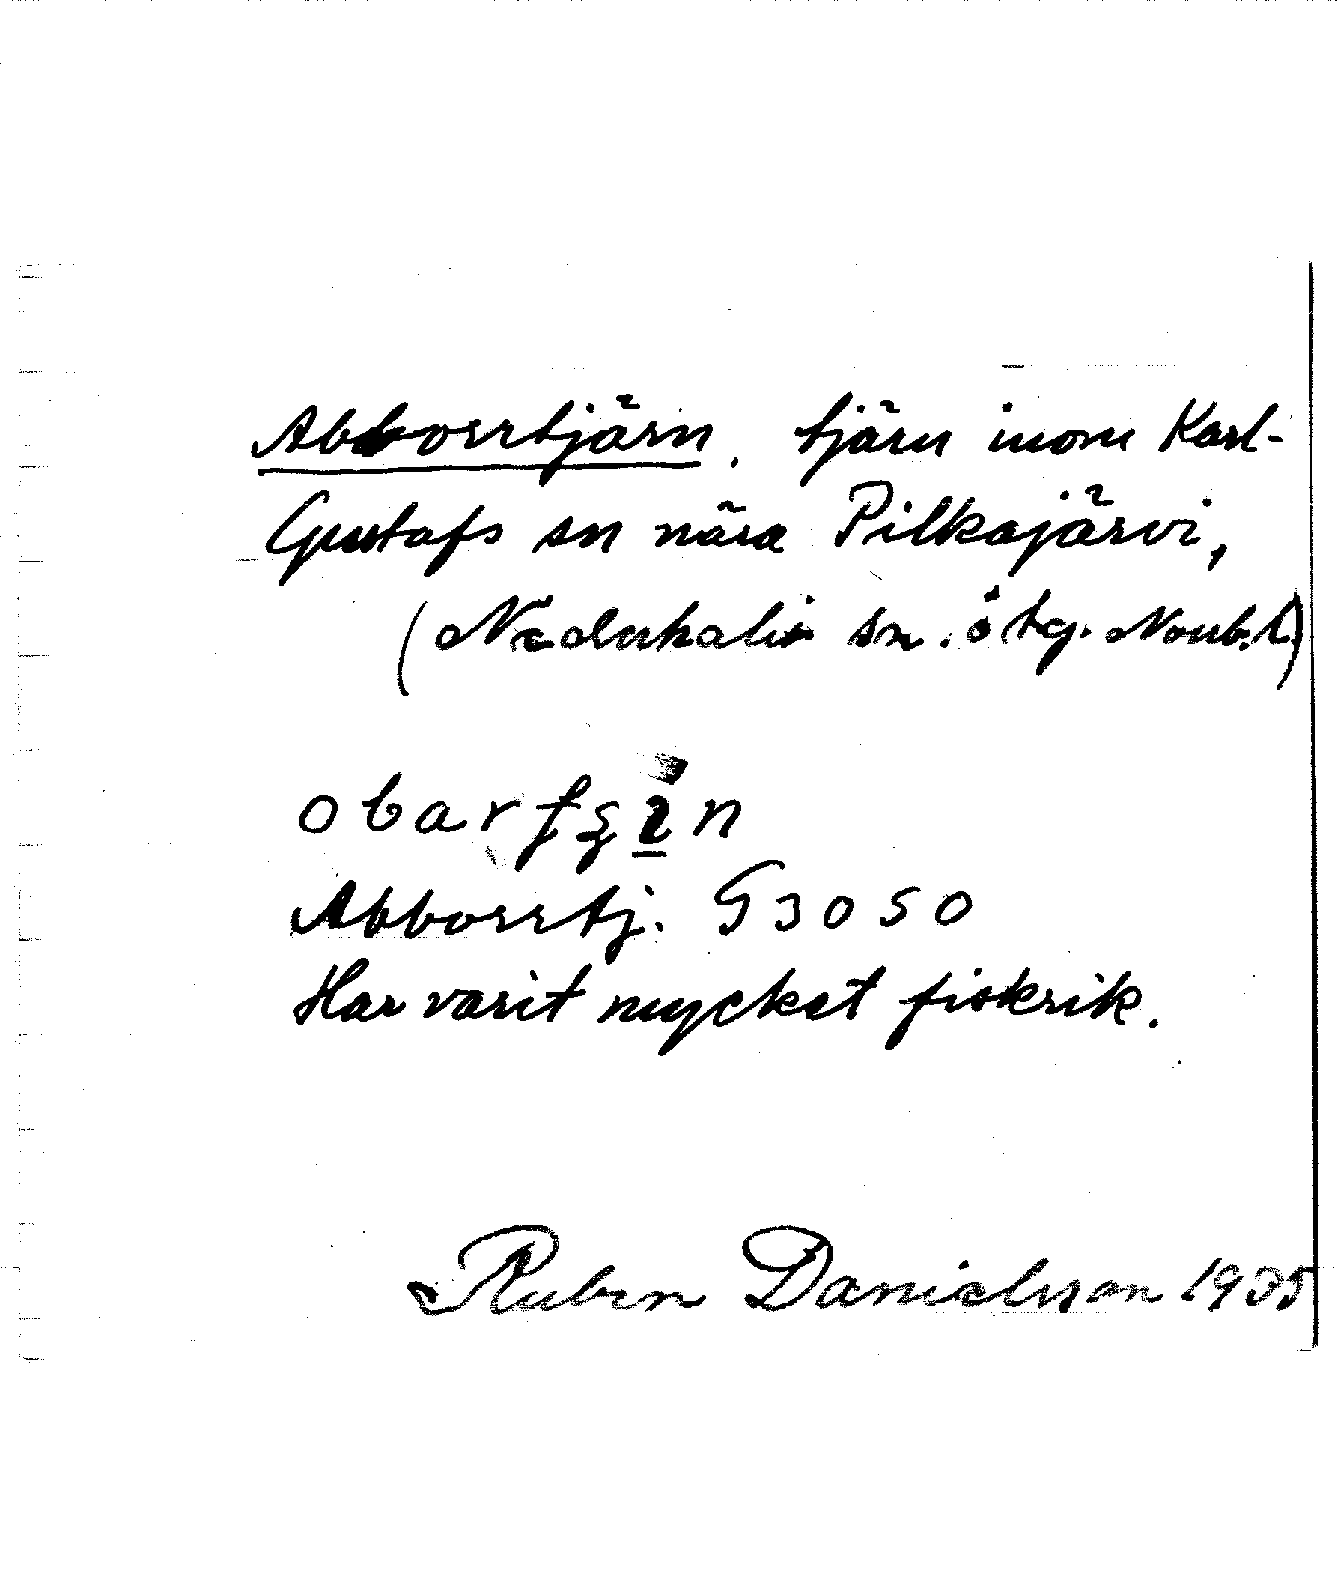 Abborrtjärn. tjärn inom Karl-
Gustafs sn nära Pilkajärvi,
(Nederkalix sn. ö tg. Norrb. l.)
obar
Abborrtj. G3050
Har varit mycket fiskrik.
Ruben Danielsson 1935